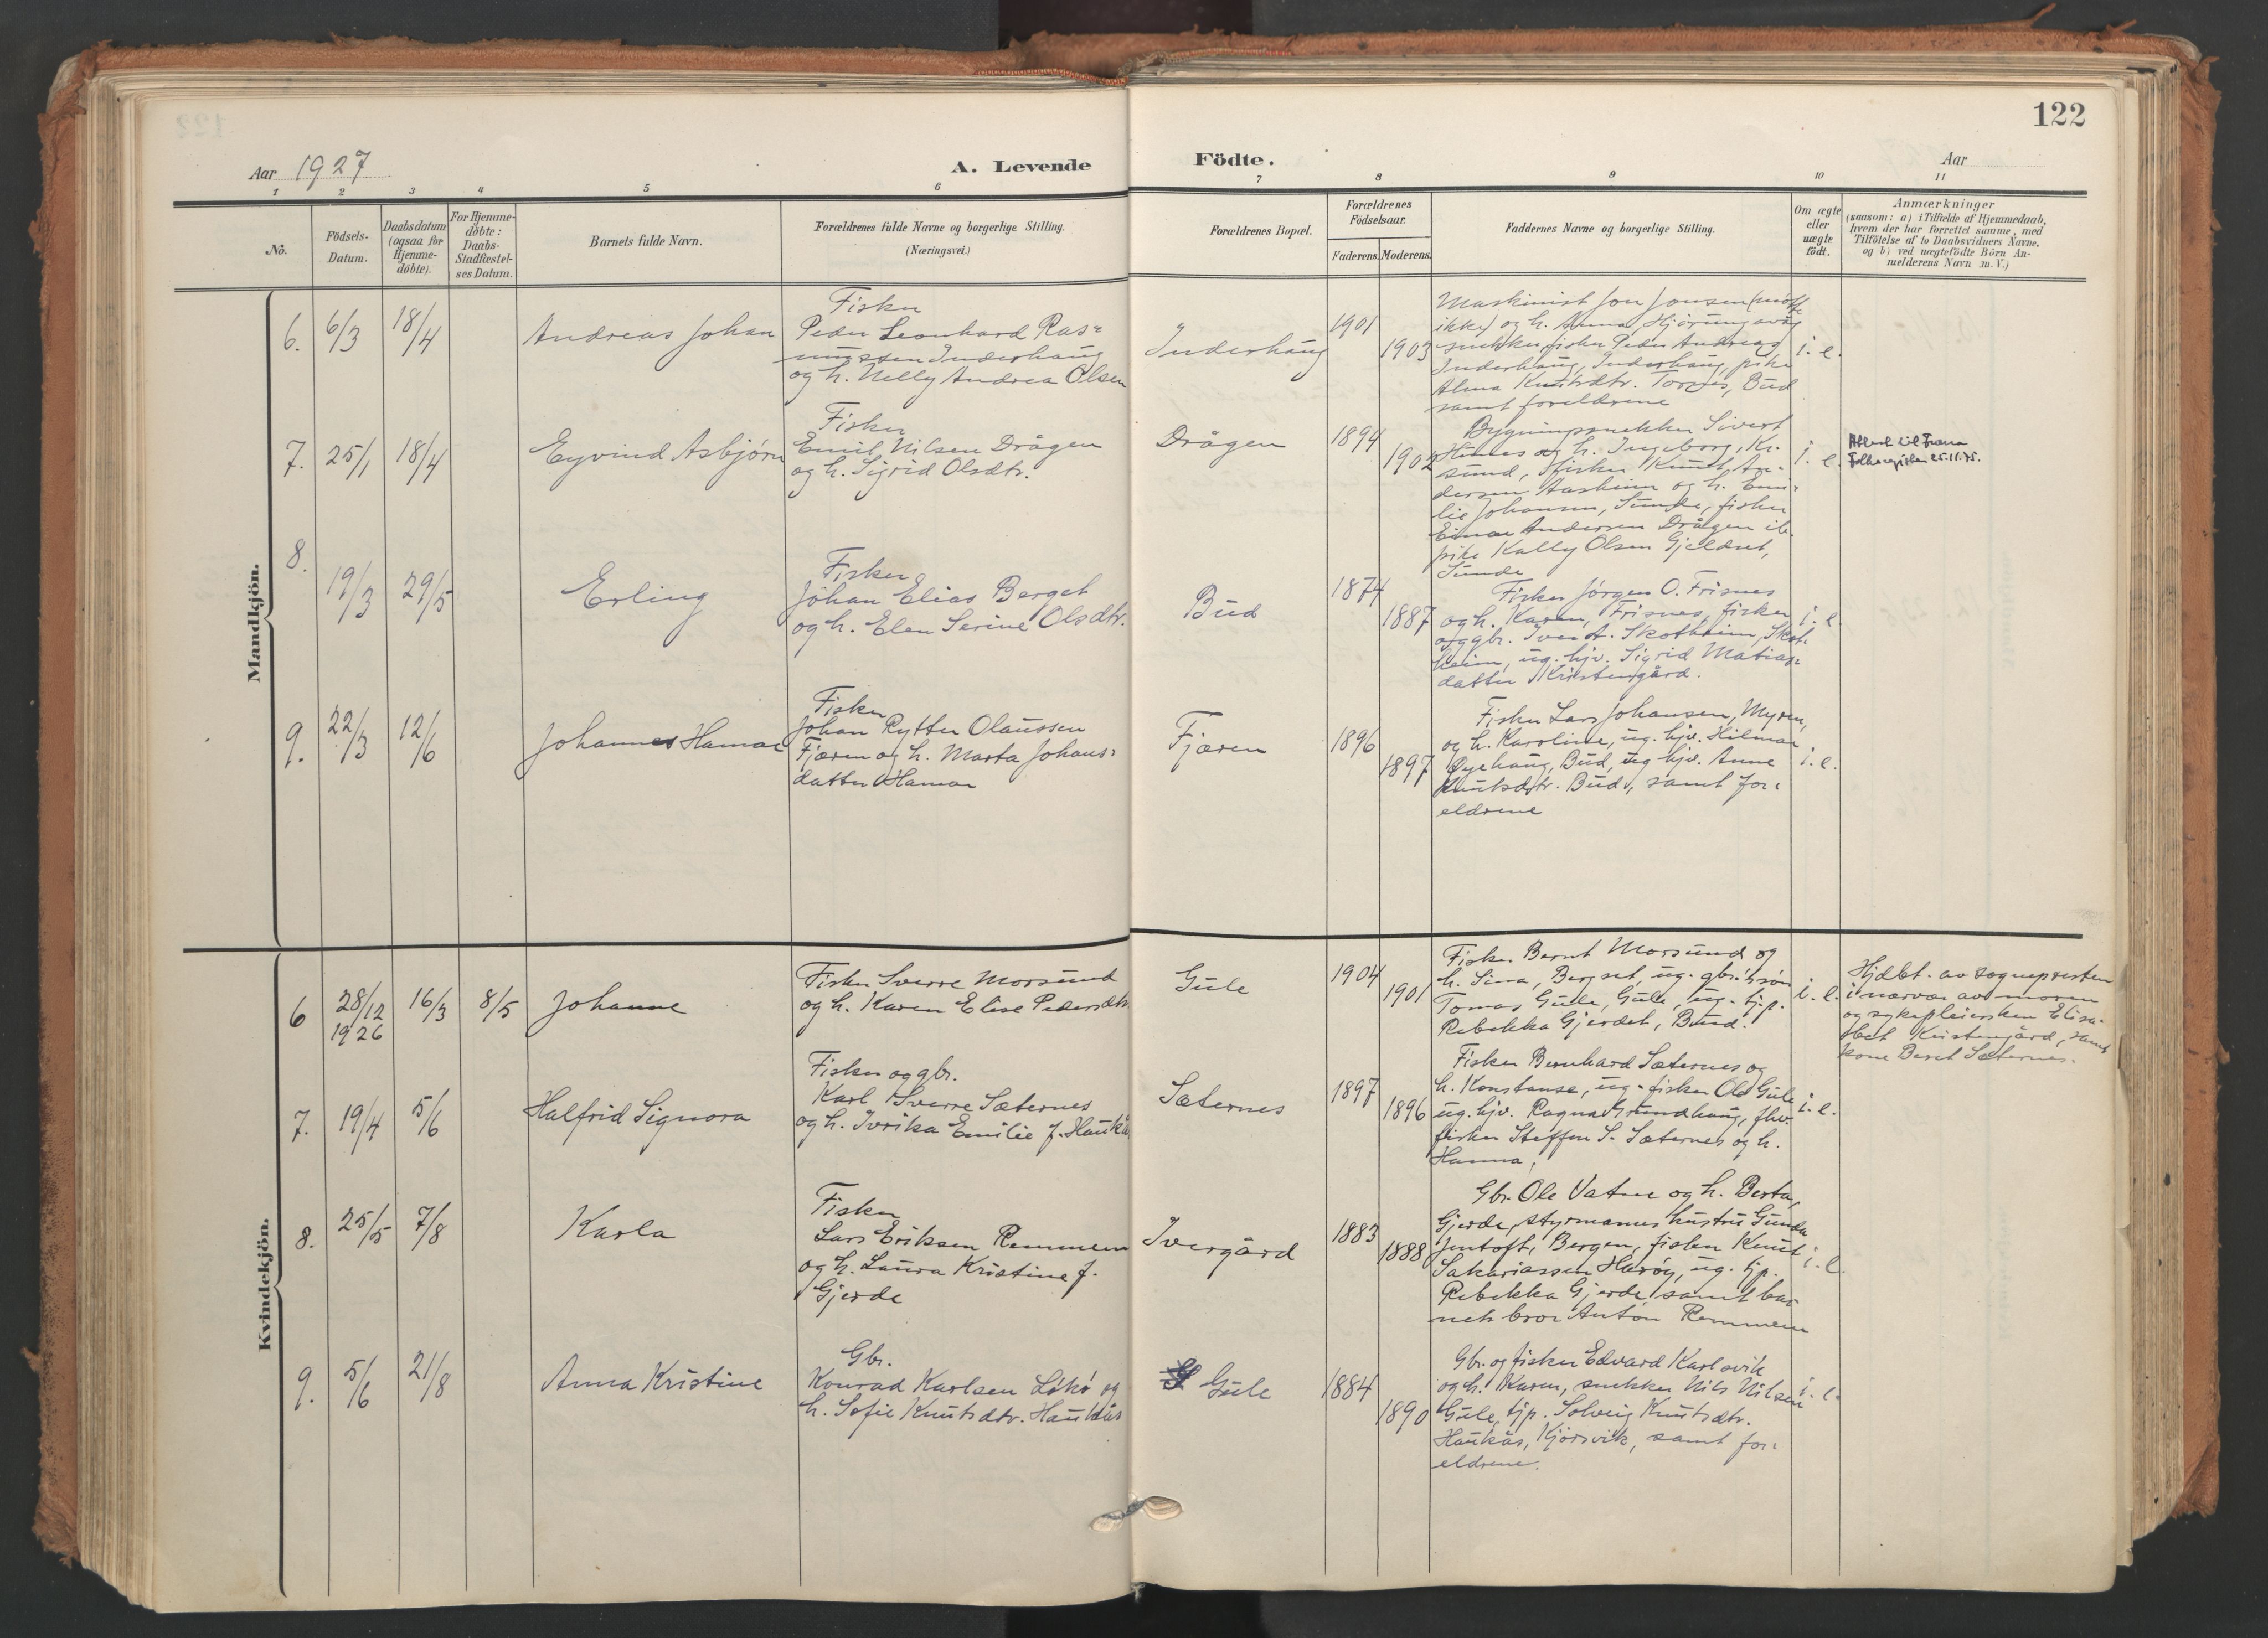 122
Aar 1927
A. Levende
Födte.
Aar
1 2 3 4 5 6 7 8 9 10 11
No.
Födsels-
Datum.
Daabsdatum
(ogsaa for
Hjemme-
döbte).
For Hjemme-
döbte:
Daabs-
Stadfæstel-
ses Datum.
Barnets fulde Navn.
Forældrenes fulde Navne og borgerlige Stilling.
(Næringsvei.)
Forældrenes Bopæl.
Forældrenes
Födselsaar.
Faderens. Moderens.
Faddernes Navne og borgerlige Stilling.
Om ægte
eller
uægte
födt.
Anmærkninger
(saasom: a) i Tilfælde af Hjemmedaab,
hvem der har forrettet samme, med
Tilföielse af to Daabsvidners Navne,
og b) ved uægtefödte Börn An-
melderens Navn m. V.)
Mandkjön.
6.
6/3
18/4
Andreas Johan
Fisker
Peder Leonhard Ras=
mussen Inderhaug
og h. Nelly Andrea Olsen
Inderhaug
1901
1903
Maskinist Jon Jonsen (møtte
ikke) og h. Anna, Hjørungavåg
snekker, fisker Peder Andreas
Inderhaug, Inderhaug, pike
Alma Knutsdtr. Tornes, Bud
samt foreldrene
i. e.
7.
25/1
18/4
Eyvind Asbjørn
Fisker
Emil Nilsen Drågen
og h. Sigrid Olsdtr.
Drågen
1894
1902
Bygningssnekker Sivert
og h. Ingeborg, Kr.
sund, fisker Knut An-
dersen og h. Emi-
lie Johansen, Sunde, fisker
Einar Andersen Drågen
pike Kally Olsen Gjeldnet,
Sunde
i. e.
Attest til Fræna
Folkeregister 25.11.75.
8.
19/3
29/5
Erling
Fisker
Johan Elias Berget
og h. Elen Serine Olsdtr.
Bud
1874
1887
Fisker Jørgen O. Frisnes
og h. Karen, Frisnes, fisker
og gbr. Iver A. Skotheim, Skot-
heim, ug. hjv. Sigrid Matias=
datter Kristengård.
i. e.
9.
22/3
12/6
Johannes Hamar
Fisker
Johan Rytter Olaussen
Fjæren og h. Marta Johans=
datter Hamar
Fjæren
1896
1897
Fisker Lars Johansen, Myren,
og h. Karoline, ug. hjv. Hilmar
Øyehaug, Bud, ug hjv. Anne
Knutsdtr. Bud, samt for=
eldrene
i. e.
Kvindekjön.
6
28/12
1926
16/3
8/5
Johanne
Fisker Sverre Morsund
og h. Karen Elise Pedersdtr.
Gule
1904
1901
Fisker Bernt Morsund og
h. Sina, Bergset, ug. gbr.'s søn
Tomas Gule, Gule, ug. tjp.
Rebekka Gjerdet, Bud.
i. e.
Hjdbt. av sogneprestten
i nærvær av moren
og sykepleiersken Elisa-
bet Kristengård, samt
kone Beret Sæternes.
7.
19/4
5/6
Halfrid Signora
Fisker og gbr.
Karl Sverre Sæternes
og h. Ivrika Emilie f. Haukås
Sæternes
1897
1896
Fisker Bernhard Sæternes og
h. Konstanse, ug. fisker Ole Gule
ug. hjv. Ragna Grundhaug, fhv.
fisker Steffen S. Sæternes og h.
Hanna,
i. e.
8.
25/5
7/8
Karla
Fisker
Lars Eriksen Remmem
og h. Laura Kristine f.
Gjerde
Ivergård
1883
1888
Gbr. Ole Vatne og h. Berta,
Gjerde, styrmanns hustru Gunda
Jentoft, Bergen, fisker Knut
Sakariassen Harøy, ug. tjp.
Rebekka Gjerde, samt bar-
nets bror Anton Remmem
i. e.
9.
5/6
21/8
Anna Kristine
Gbr.
Konrad Karlsen Løkø og
h. Sofie Knutsdtr. Haukås
Gule
1884
1890
Gbr. og fisker Edvard Karlsvik
og h. Karen, snekker Nils Nilsen
Gule, tjp. Solveig Knutsdtr.
Haukås, Kjørsvik, samt for=
eldrene.
i. e.